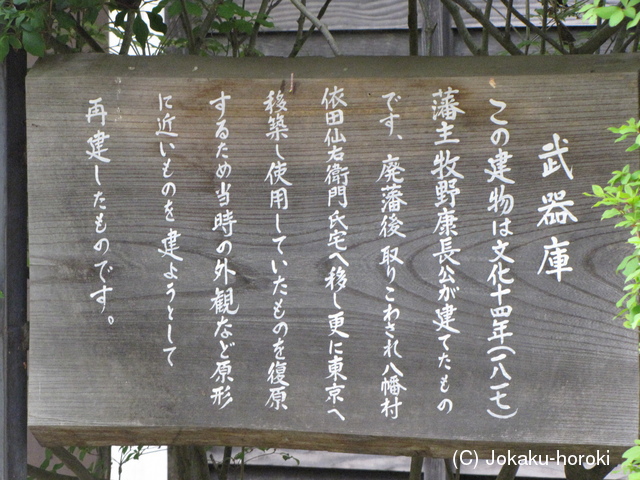 武器庫
この建物は文化十四年(一八一七)
藩主牧野康長公が建てたもの
です、廃藩後取りこわされ八幡村
依田仙右衛門氏宅へ移し更に東京へ
移築し使用していたものを復原
するため当時の外観など原形
に近いものを建ようとして
再建したものです。
(C) Jokaku-horoki